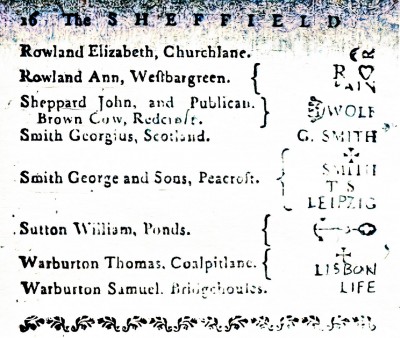 16 The SHEFFIELD
Rowland Elizabeth, Churchlane.
Rowland Ann, Weſtbargreen. { R
Sheppard John, and Publican. } WOLF
Brown Cow, Redcroft.
Smith Georgius, Scotland. G. SMITH
Smith George and Sons, Peacroft. { SMITH
T S
LEIPZIG
Sutton William, Ponds. {
Warburton Thomas, Coalpitlane. { LISBON
Warburton Samuel. Bridgehouſes. LIFE